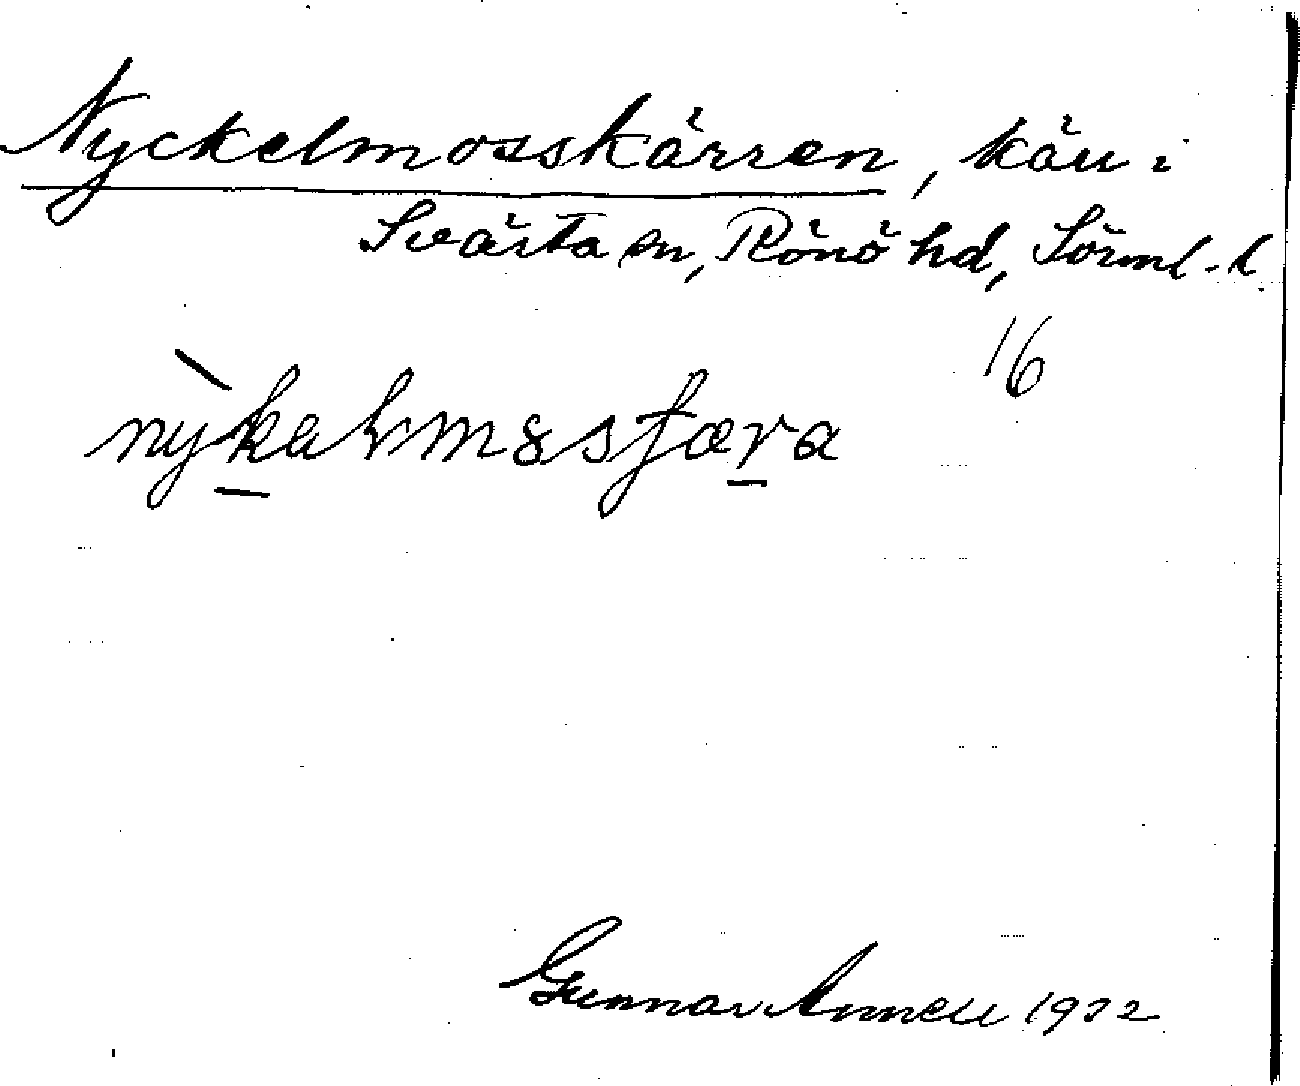 Nyckelmosskärren, kärr i
Svärta sn, Rönö hd, Sörml. l.
16
Gunnar Annell 1932